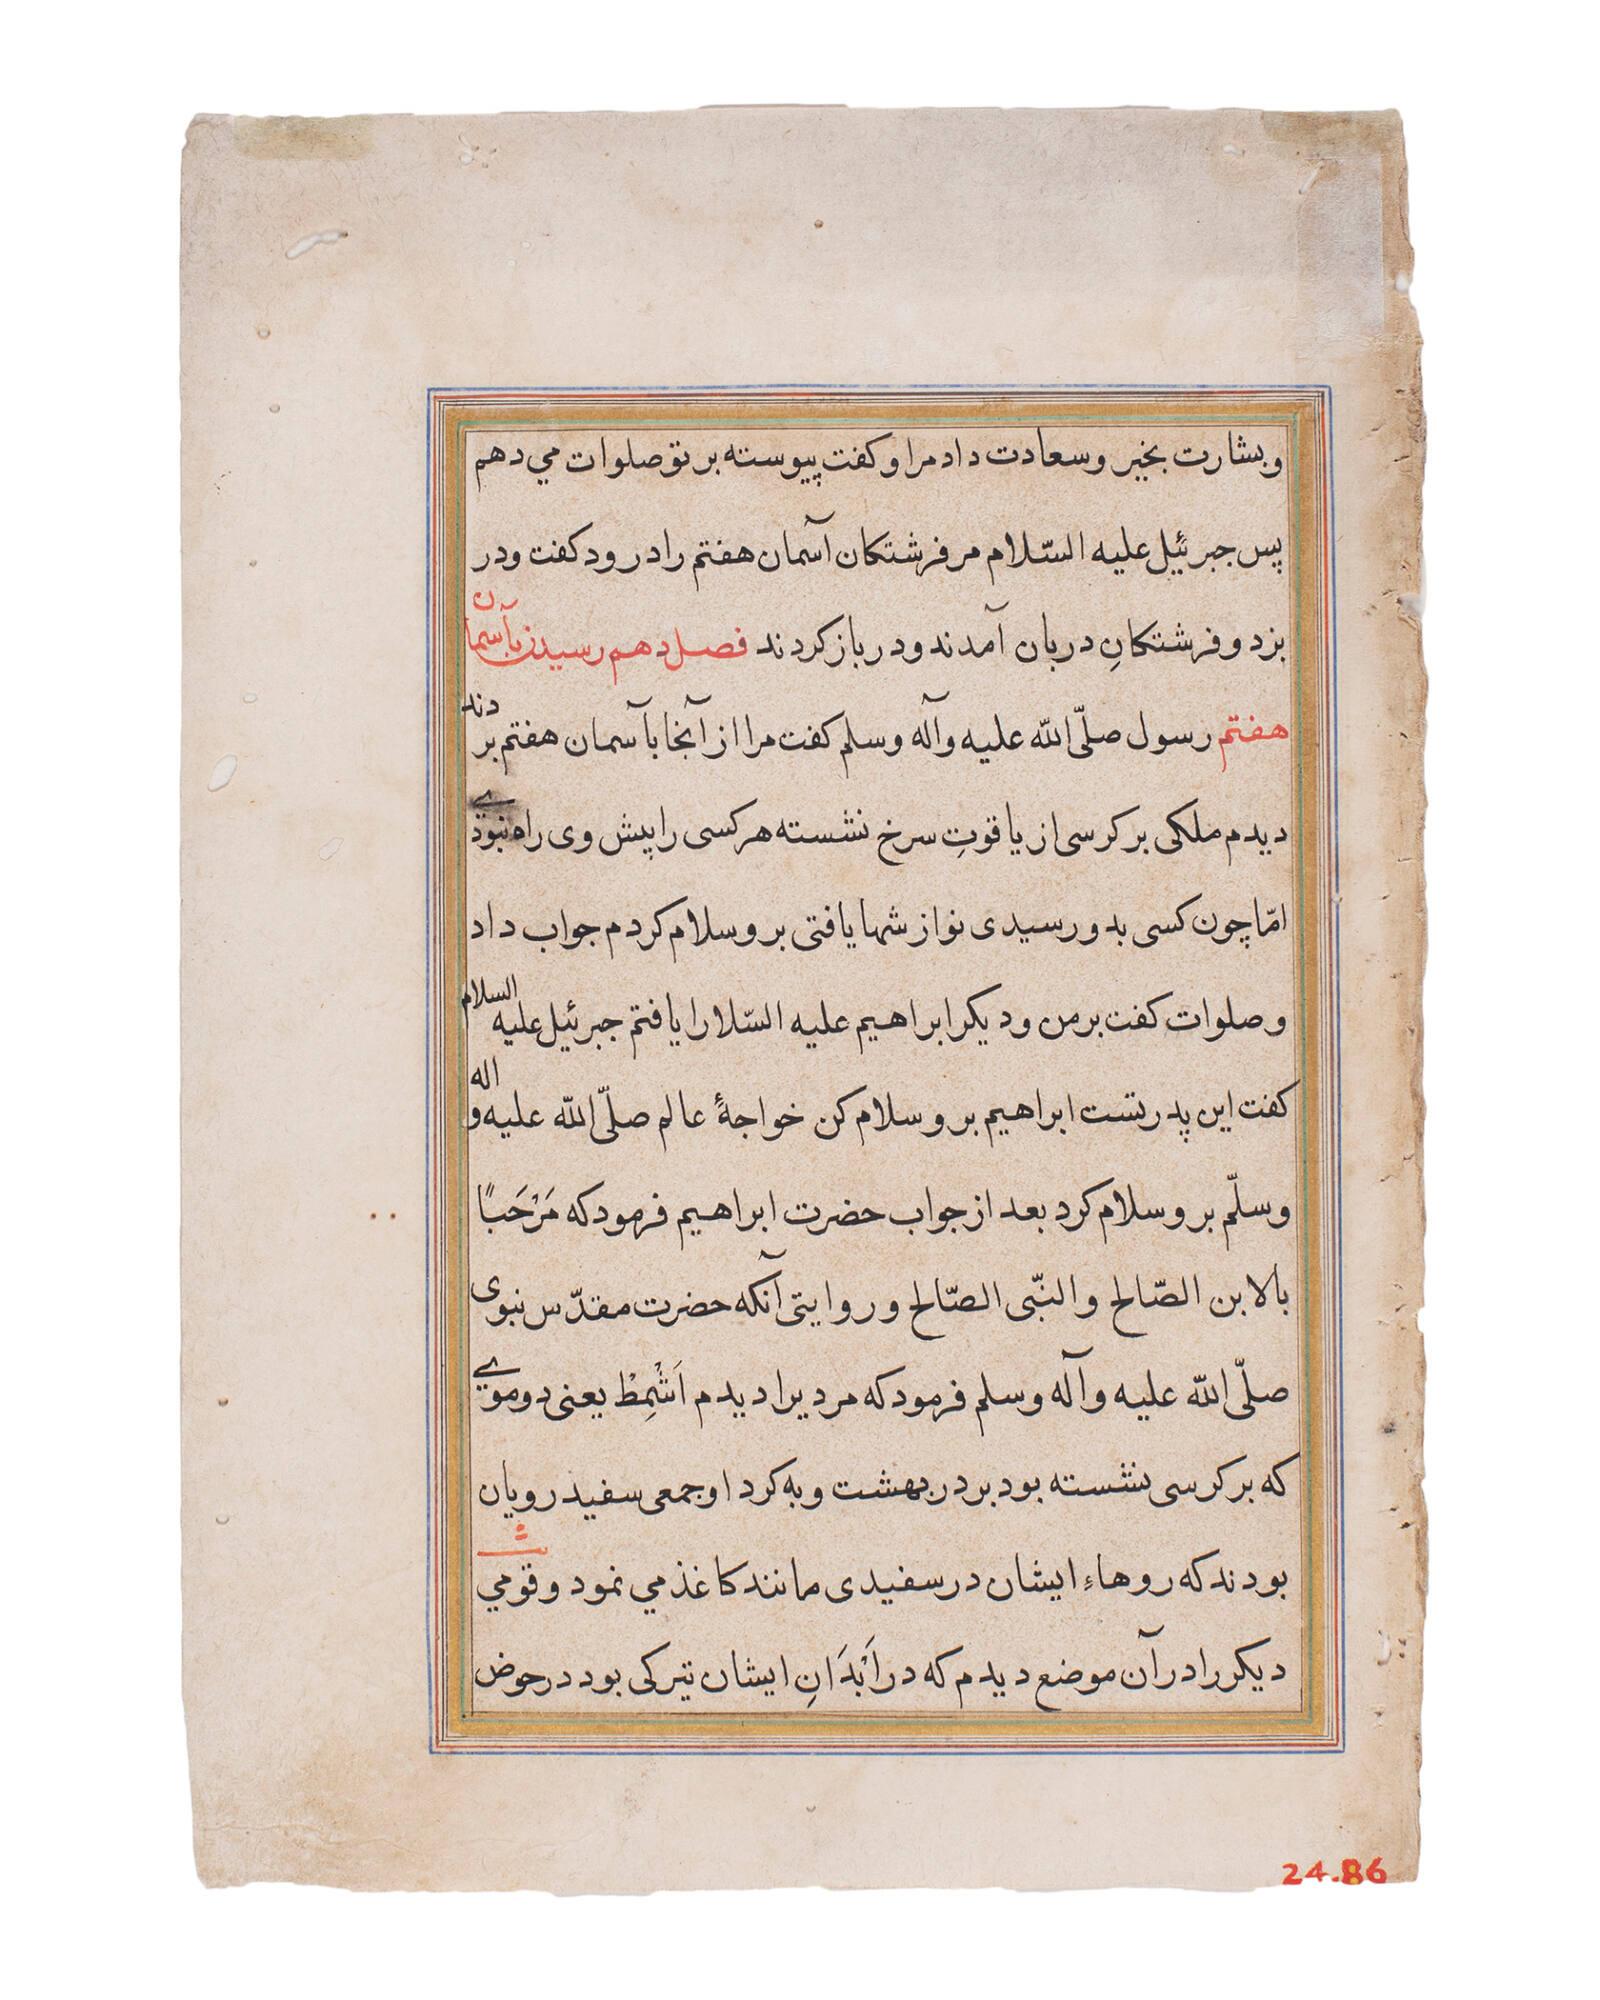 وبشارت بخیر وسعادت داد مرا وکفت پیوسته بر تو صلوات می دهم
پس جبرئیل علیه السّلام مر فرشتکان آسمان هفتم را درود کفت ودر
بزد وفرشتکانِ دربان آمدند ودر باز کردند فصل دهم رسیدن بآسمان
هفتم رسول صلّی الله علیه وآله وسلم کفت مرا از آنجا بآسمان هفتم بردند
دیدم ملکی بر کرسی از یاقوتِ سرخ نشسته هر کسی را پیش وی راه نبودی
امّا چون کسی بدو رسیدی نوازشها یافتی برو سلام کردم جواب داد
وصلوات کفت بر من ودیکر ابراهیم علیه السّلا را یافتم جبرئیل علیه السلام
کفت این پدر تست ابراهیم برو سلام کن خواجۀ عالم صلّی الله علیه و اله
وسلّم برو سلام کرد بعد از جواب حضرت ابراهیم فرمود که مَرْحَبًا
بالابن الصّالح والنّبی الصّالح وروایتی آنکه حضرت مقدّس نبوی
صلّی الله علیه وآله وسلم فرمود که مردیرا دیدم اَشْمِطْ یعنی دوموی
که بر کرسی نشسته بود بر در بهشت وبه کرد او جمعی سفید رویان
بودند که روهاءِ ایشان در سفیدی مانند کاغذ می نمود وقومی
دیکر را در آن موضع دیدم که در اَبْدَانِ ایشان تیرکی بود در حوض
24.86